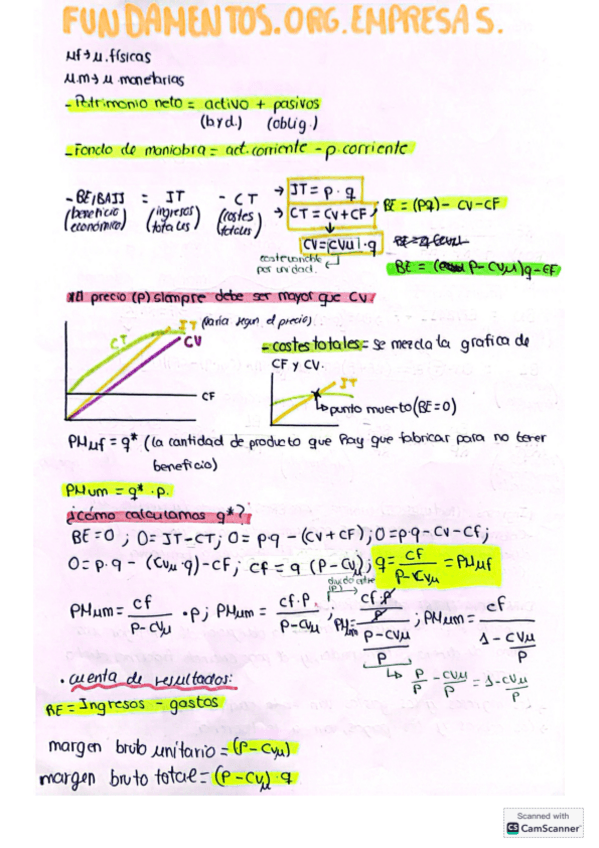 FUNDAMENTOS.ORG.EMPRESAS.
uf→u.físicas
u.m→u monetarias
- Patrimonio neto = activo + pasivos
(byd.) (oblig.)
- Fondo de maniobra = act.corriente - p.corriente
- BE/BAII = IT - CT → IT = p · q
(beneficio económico) (ingresos totales) (costes totales) → CT = CV + CF
BE = (Pq) - CV - CF
CV = CVu · q
coste variable por unidad.
BE = (P - CVu)q - CF
*El precio (p) siempre debe ser mayor que CV.
IT (varia según el precio)
CT
CV
CF
- costes totales = se mezcla la grafica de CF y CV.
IT
punto muerto (BE=0)
PMuf = q* (la cantidad de producto que hay que fabricar para no tener
beneficio)
PMum = q* · p.
¿cómo calculamos q*?
BE=0 ; 0= IT-CT; 0= p·q - (CV + CF); 0=p·q - CV - CF;
0= p·q - (CVu·q) - CF; CF = q (P - CVu); q= CF / P - CVu = PMuf
divido entre (P)
PMum = CF / P - CVu · P; PMum = CF · P / P - CVu ; PMum= CF · P / P / P - CVu / P ; PMum = CF / 1 - CVu / P
P / P - CVu / P = 1 - CVu / P
· cuenta de resultados:
BE = Ingresos - gastos
margen bruto unitario = (P - CVu)
margen bruto total = (P - CVu) · q
Scanned with
CS CamScanner